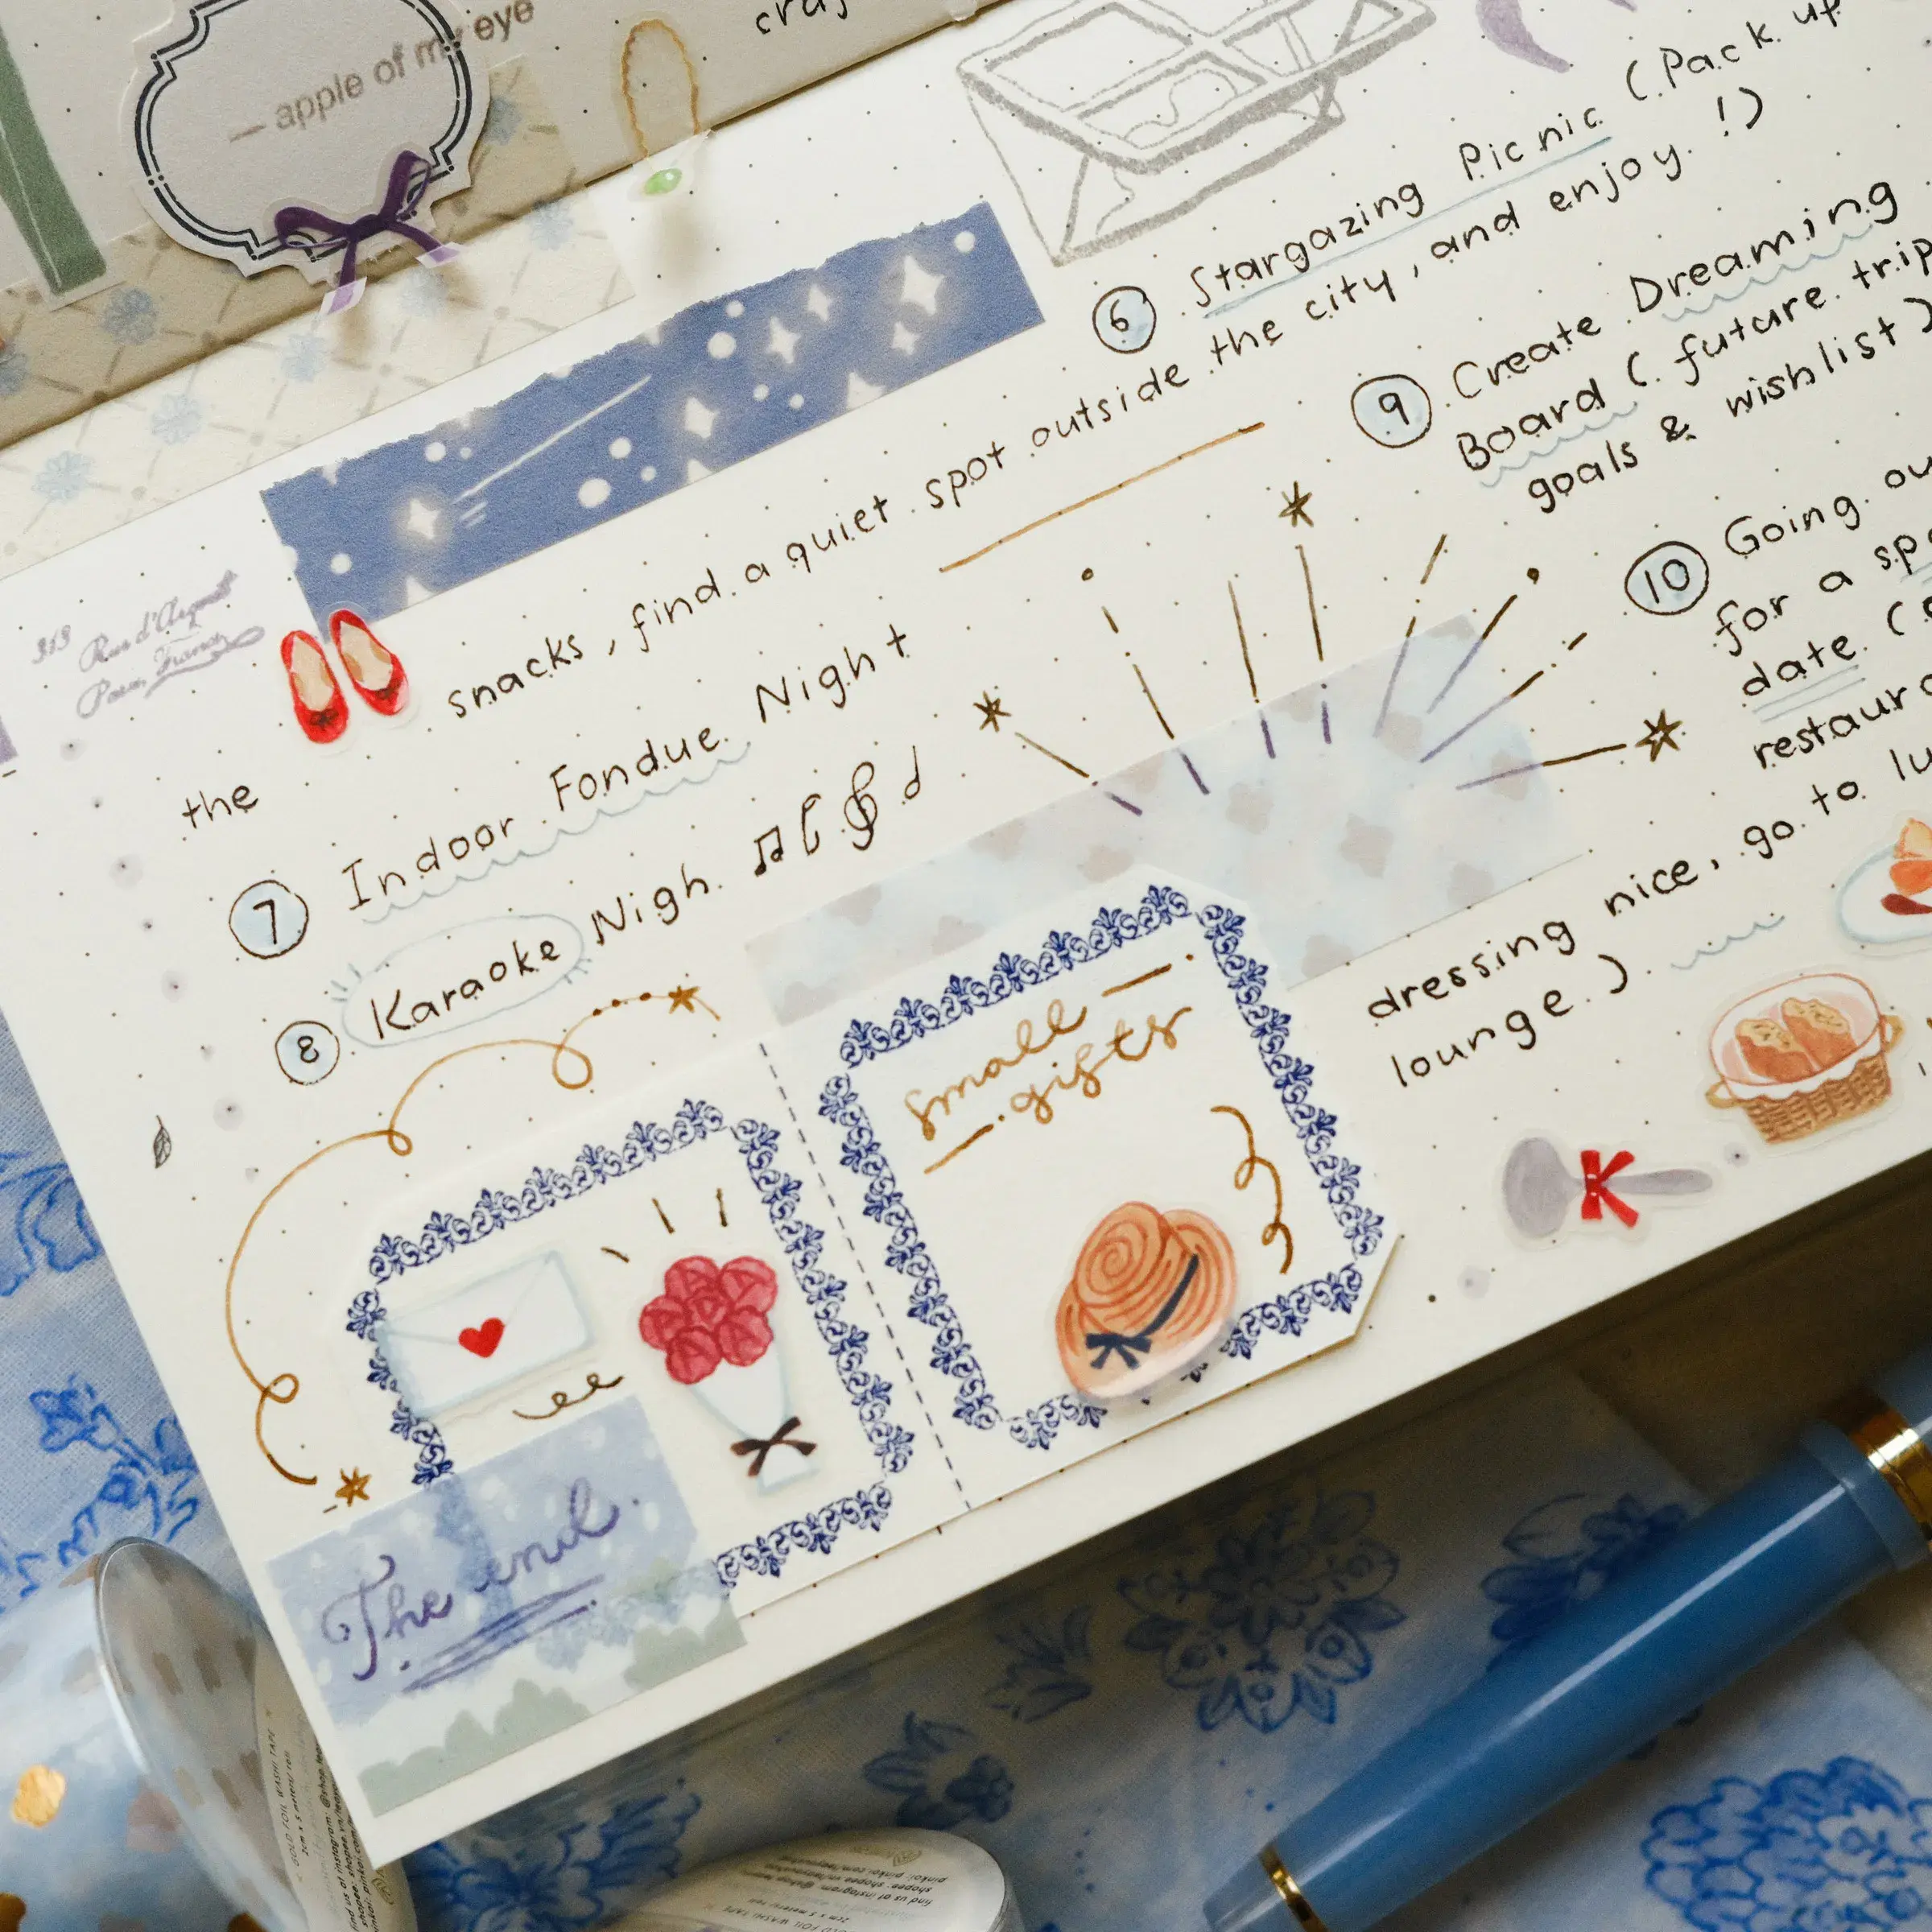 — apple of my eye
⑥ Stargazing Picnic (Pack up
the snacks, find a quiet spot outside the city, and enjoy !)
⑦ Indoor Fondue Night
⑧ Karaoke Nigh.
⑨ Create Dreaming
Board (future trip
goals & wishlist)
⑩ Going
for a
date (
dressing nice, go to
lounge.)
small
gifts
The end.
313 Rue d'Argent
Paris, France
GOLD FOIL WASHI TAPE